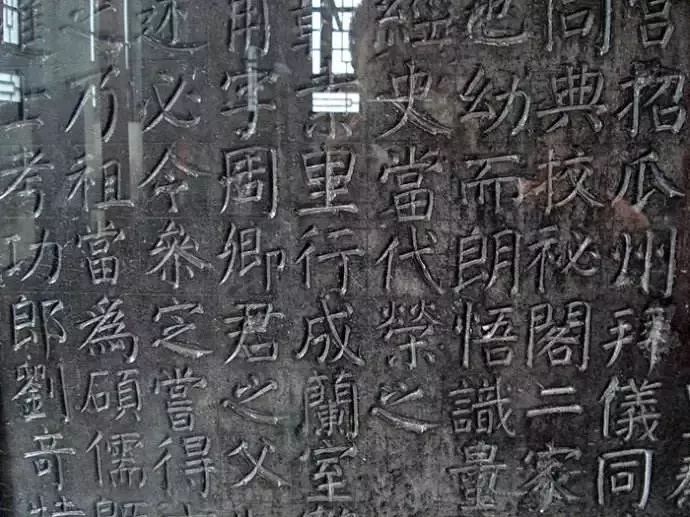 招瓜州拜儀同
同典校祕閣二家
也幼而朗悟識量
經史當代榮之
里行成蘭室
字周卿君之父
述必令參定嘗得
乃祖當為碩儒
士考功郎劉奇特